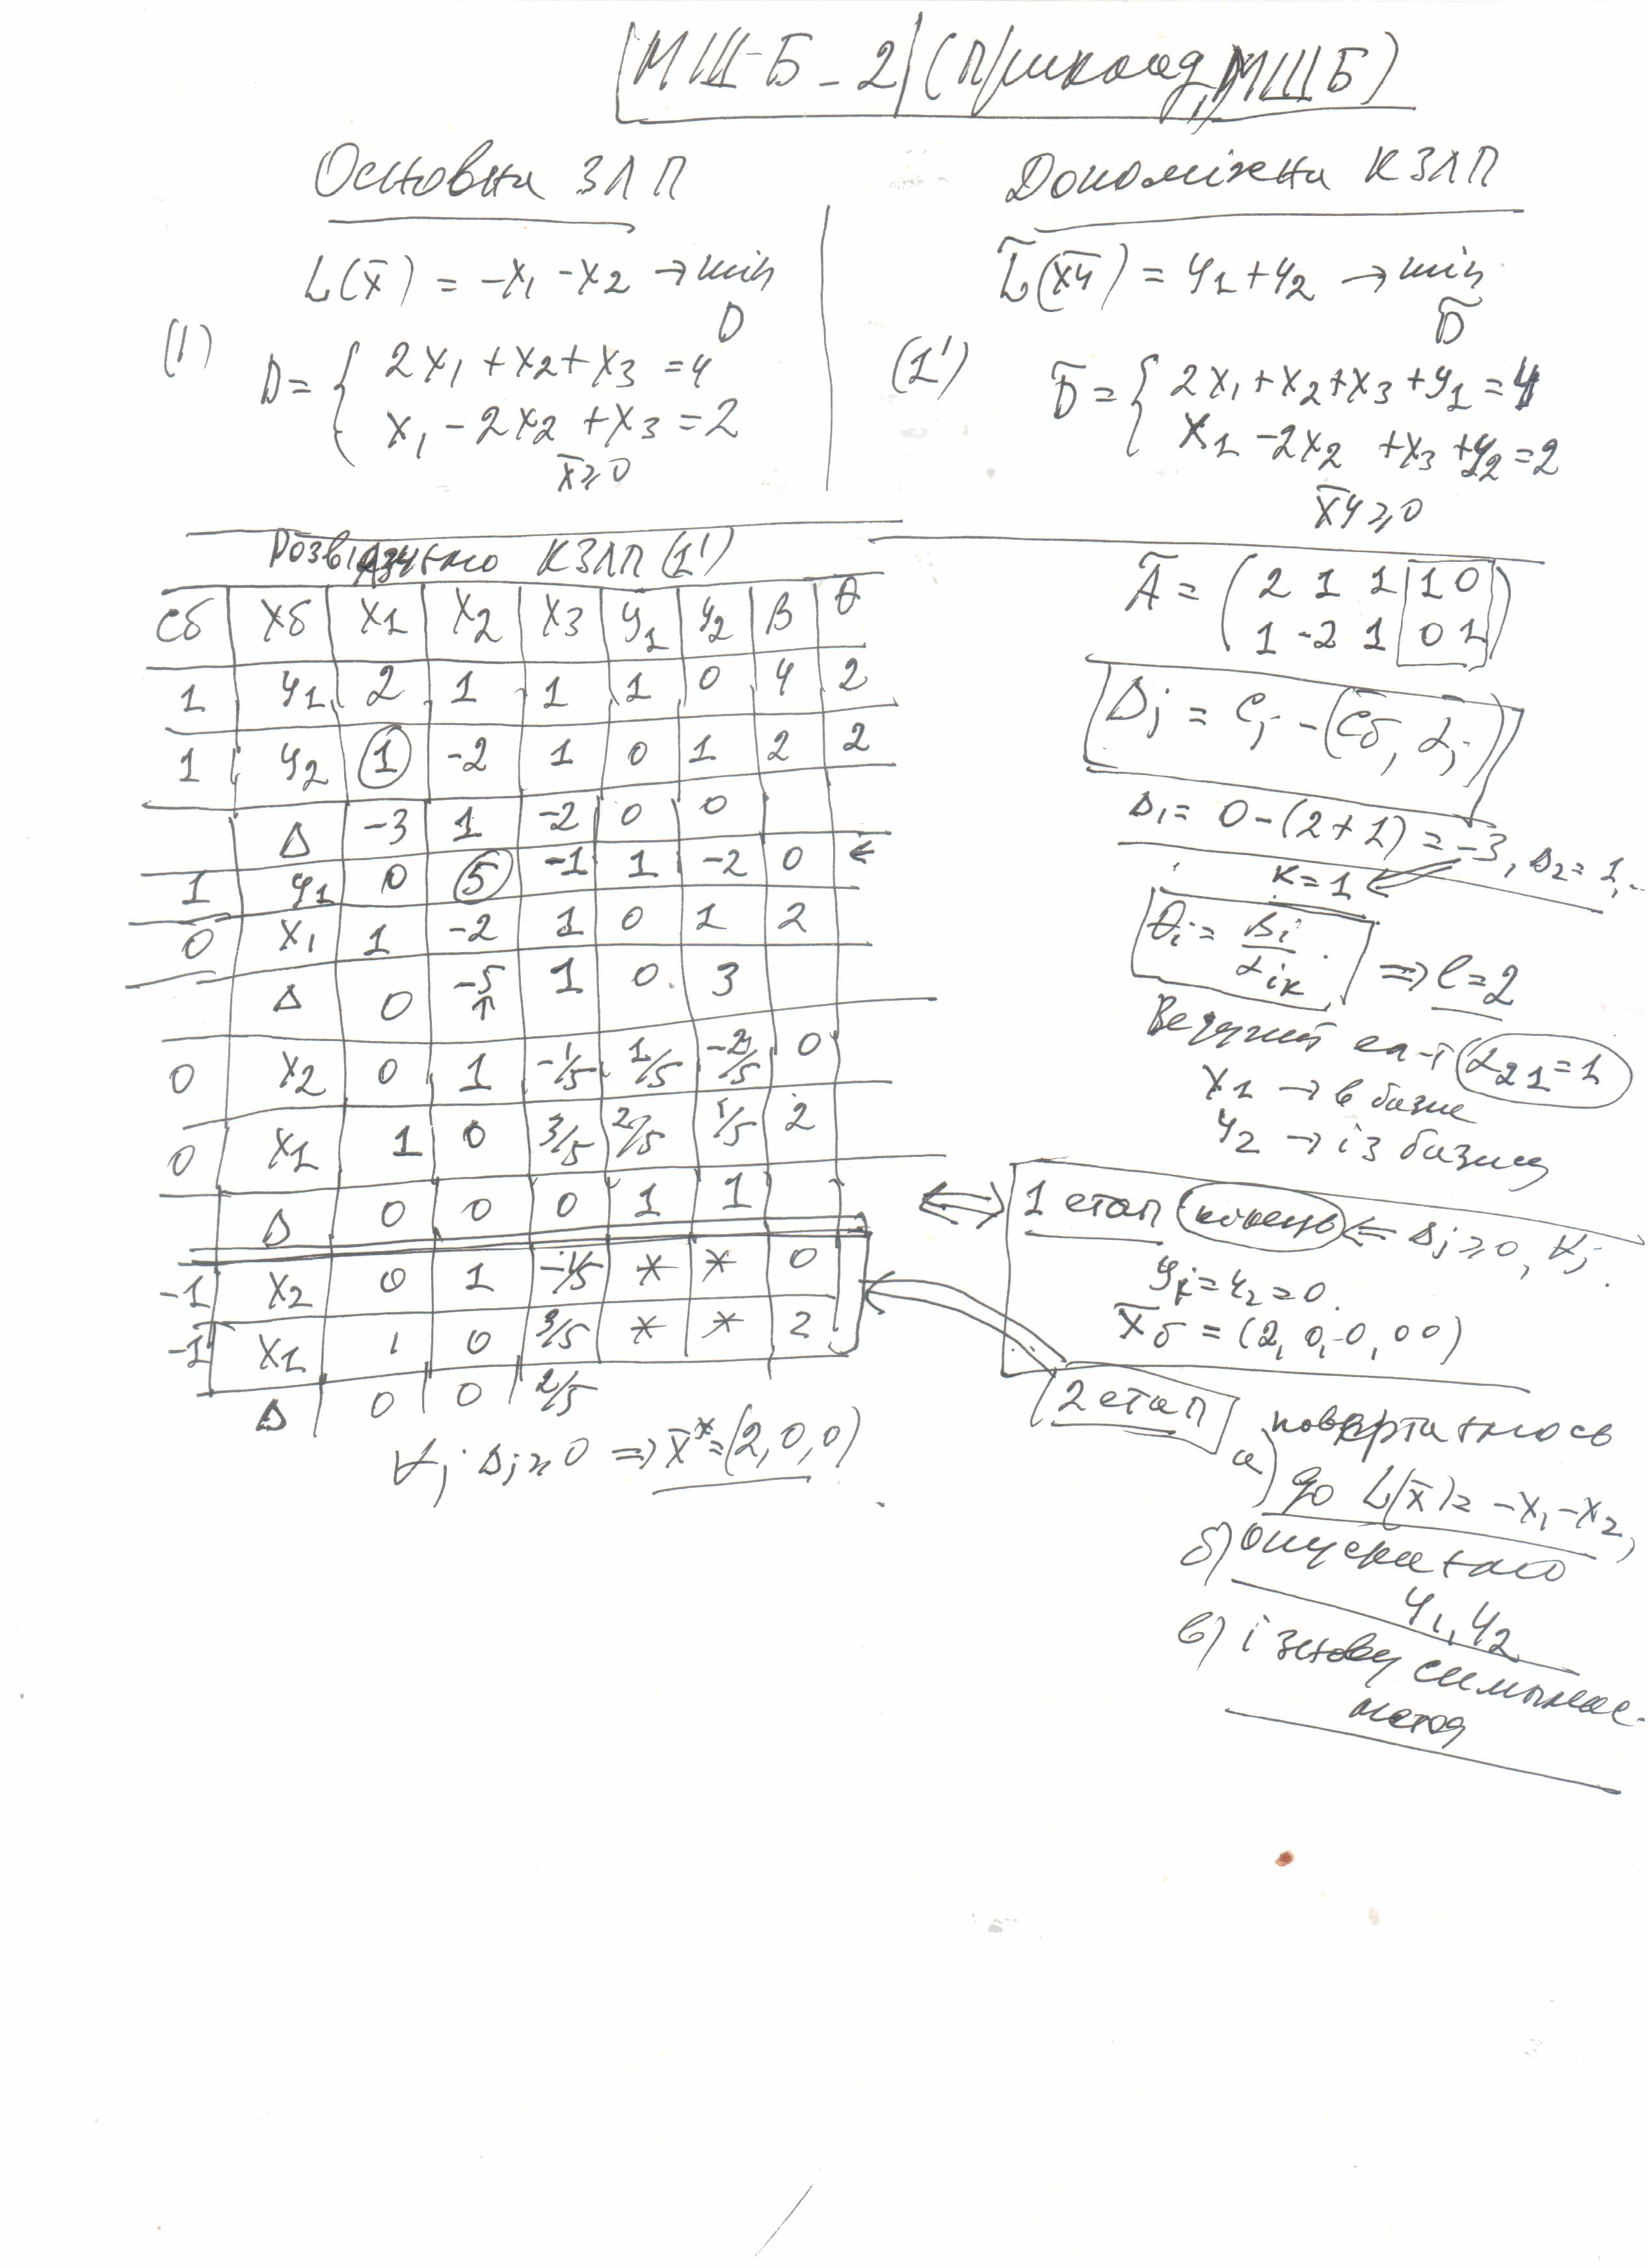 МШ-Б-2 (Приклад, МШБ)
Основна ЗЛП
L(x̄) = -x₁ - x₂ → min
D
(1)
D = { 2x₁ + x₂ + x₃ = 4
x₁ - 2x₂ + x₃ = 2
x̄ ≥ 0
Допоміжна КЗЛП
L̃(x̄ȳ) = y₁ + y₂ → min
D̃
(1')
D̃ = { 2x₁ + x₂ + x₃ + y₁ = 4
x₁ - 2x₂ + x₃ + y₂ = 2
x̄ȳ ≥ 0
Розвязуємо КЗЛП (1')
Cб | Xб | X1 | X2 | X3 | y1 | y2 | B | θ
1 | y1 | 2 | 1 | 1 | 1 | 0 | 4 | 2
1 | y2 | 1 | -2 | 1 | 0 | 1 | 2 | 2
Δ | -3 | 1 | -2 | 0 | 0
1 | y1 | 0 | 5 | -1 | 1 | -2 | 0 | ←
0 | X1 | 1 | -2 | 1 | 0 | 1 | 2
Δ | 0 | -5 ↑ | 1 | 0 | 3
0 | X2 | 0 | 1 | -1/5 | 1/5 | -2/5 | 0
0 | X1 | 1 | 0 | 3/5 | 2/5 | 1/5 | 2
Δ | 0 | 0 | 0 | 1 | 1
-1 | X2 | 0 | 1 | -1/5 | * | * | 0
-1 | X1 | 1 | 0 | 3/5 | * | * | 2
Δ | 0 | 0 | 2/5
∀j Δj ≥ 0 ⇒ x̄* = (2, 0, 0)
Ã = ( 2 1 1 1 0
1 -2 1 0 1 )
Δj = Cj - (C̄б, αj)
Δ₁ = 0 - (2 + 1) = -3, Δ₂ = 1, ..
k = 1
θi = Bi / αik ⇒ l = 2
Ведучий ел-т α₂₁ = 1
x₁ → в базис
y₂ → із базису
⇔ 1 етап кінець ⇐ Δj ≥ 0, ∀j.
y₁ = y₂ = 0.
x̄б = (2, 0, 0, 0 0)
2 етап
а) повертаємось
до L(x̄) = -x₁ - x₂,
б) опускаємо
y₁, y₂
в) і знову симплекс-
метод